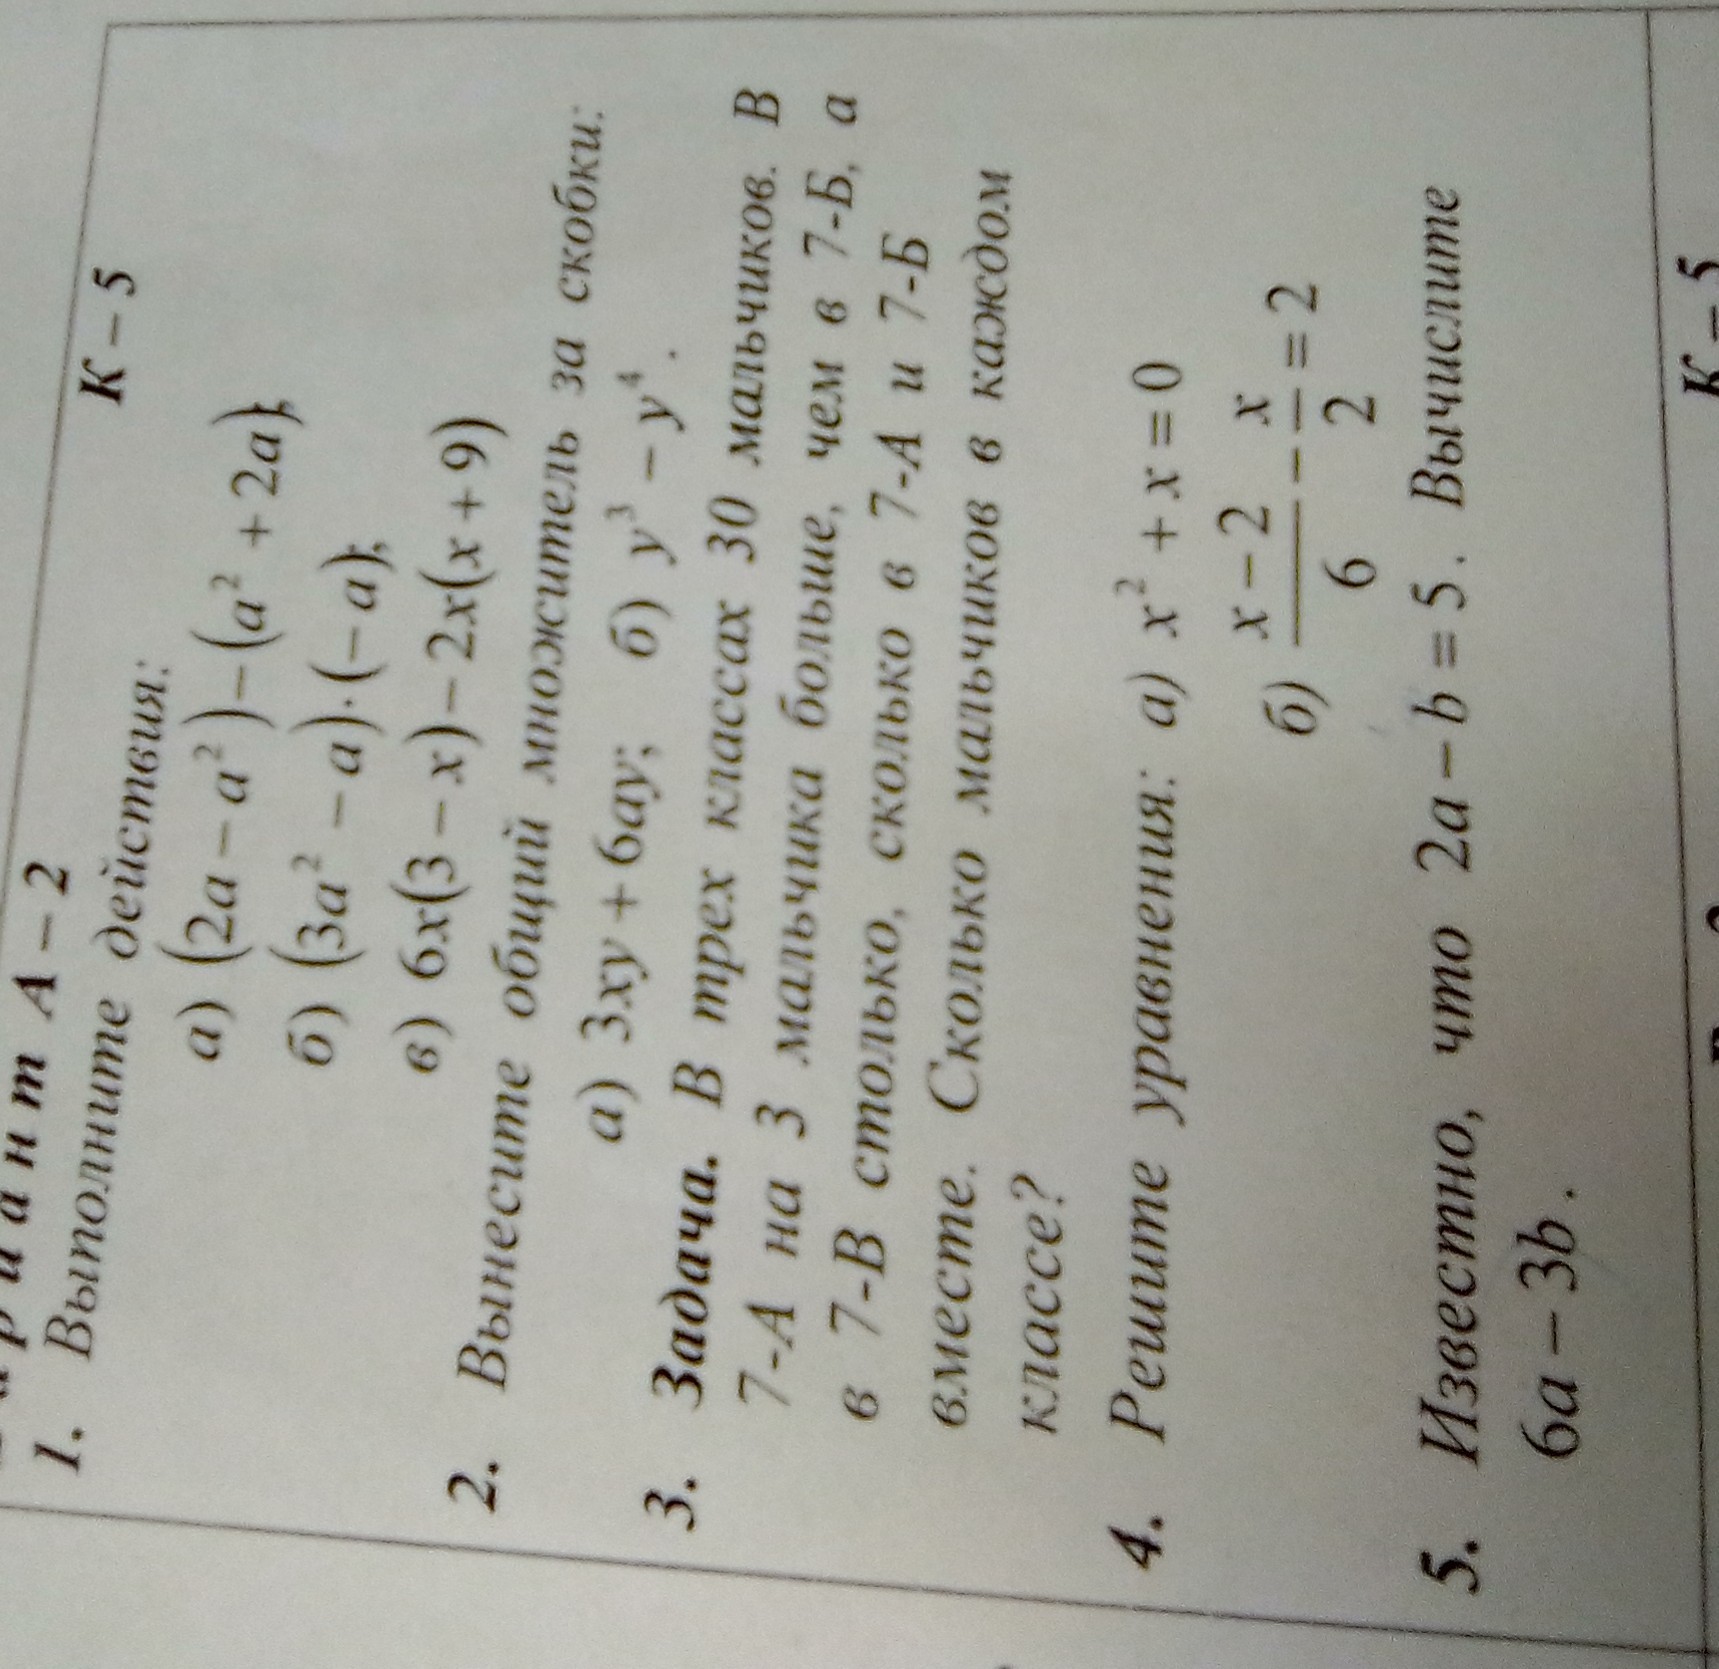 А – 2 К – 5
1. Выполните действия:
а) (2a – a²) – (a² + 2a);
б) (3a² – a)·(– a);
в) 6x(3 – x) – 2x(x + 9)
2. Вынесите общий множитель за скобки:
а) 3xy + 6ay; б) y³ – y⁴.
3. Задача. В трех классах 30 мальчиков. В
7-А на 3 мальчика больше, чем в 7-Б, а
в 7-В столько, сколько в 7-А и 7-Б
вместе. Сколько мальчиков в каждом
классе?
4. Решите уравнения: а) x² + x = 0
б) (x – 2)/6 – x/2 = 2
5. Известно, что 2a – b = 5. Вычислите
6a – 3b.
К – 5